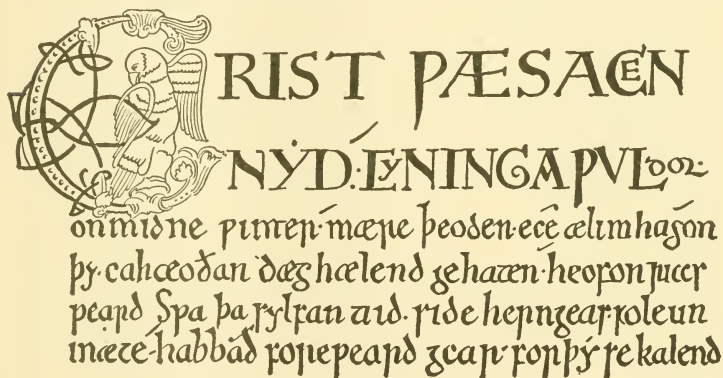 CRIST ǷÆS ACEN
NẎD· CYNINGA ǷULdor·
on midne ƿinter· mære þeoden· ece ælmihtig on
þy· eahteoðan dæg hælend gehaten· heofonrices
ƿeard Sƿa þa sylfan tiid· side herigeas· folc un
mæte· habbað foreƿeard gear· forþy se kalend